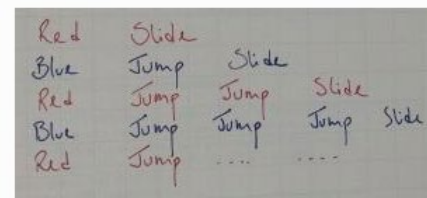 Red Slide
Blue Jump Slide
Red Jump Jump Slide
Blue Jump Jump Jump Slide
Red Jump .... ....